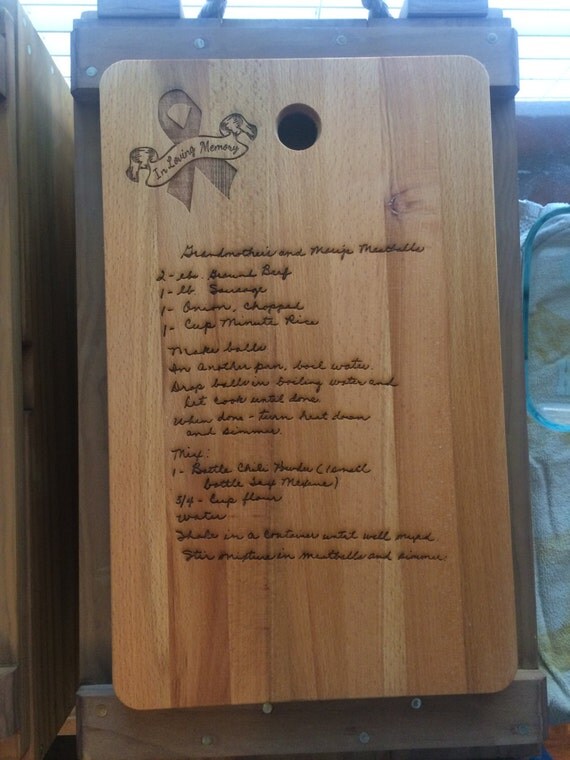 In Loving Memory
Grandmother's and Marye Meatballs
2 - lb. Ground Beef
1 - lb Sausage
1 - Onion, chopped
1 - Cup Minute Rice
Make balls
In another pan, boil water.
Drop balls in boiling water and
let cook until done.
When done - turn heat down
and simmer.
Mix:
1 - Bottle Chili Powder (1 small
bottle
3/4 - Cup flour
Water
Shake in a container until well mixed.
Stir mixture in meatballs and simmer.